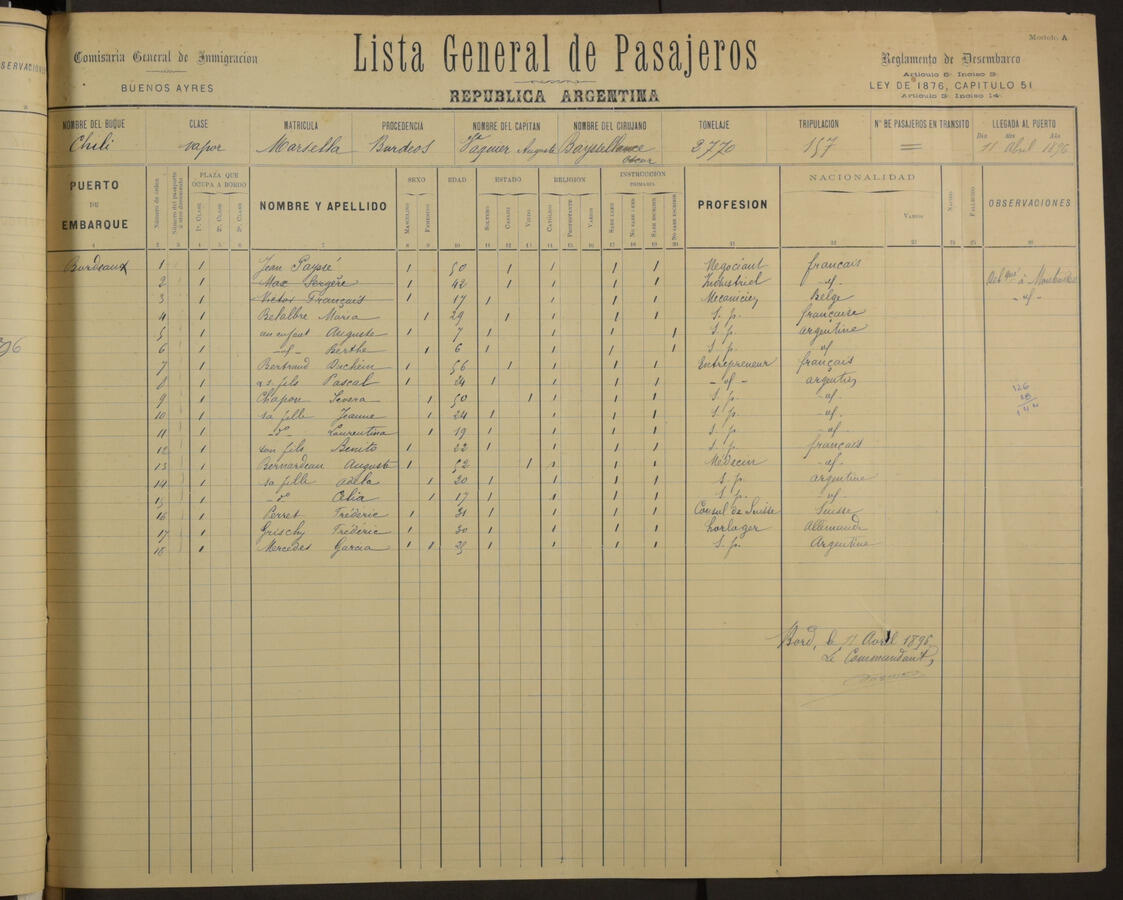 SERVACIONES
96
Modelo. A
Comisaria General de Inmigracion
BUENOS AYRES
Lista General de Pasajeros
REPUBLICA ARGENTINA
Reglamento de Desembarco
Articulo 6º Inciso 3º
LEY DE 1876, CAPITULO 51
Articulo 3º Inciso 14
NOMBRE DEL BUQUE CLASE MATRICULA PROCEDENCIA NOMBRE DEL CAPITAN NOMBRE DEL CIRUJANO TONELAJE TRIPULACION Nº DE PASAJEROS EN TRANSITO LLEGADA AL PUERTO
Dia Mes Año
Chili vapor Marsella Burdeos Vaquier Auguste Bayssellance Oscar 3770 157 = 11 Abril 1896
PUERTO DE EMBARQUE Número de órden PLAZA QUE OCUPA A BORDO 1ª CLASE 2ª CLASE 3ª CLASE NOMBRE Y APELLIDO SEXO MASCULINO FEMENINO EDAD ESTADO SOLTERO CASADO VIUDO RELIGION CATOLICO PROTESTANTE VARIOS INSTRUCCION PRIMARIA SABE LEER NO SABE LEER SABE ESCRIBIR NO SABE ESCRIBIR PROFESION NACIONALIDAD VARIOS NACIDO FALLECIDO OBSERVACIONES
Bordeaux 1 1 Jean Payssé 1 50 1 1 1 1 Negociant français
2 1 Max Sergère 1 42 1 1 1 1 Industriel -id- Déb qué à Montevideo
3 1 Victor Français 1 17 1 1 1 1 Mecanicien Belge -id-
4 1 Betalbre Maria 1 29 1 1 1 1 S. p. française
5 1 un enfant Auguste 1 7 1 1 1 1 S. p. argentine
6 1 -id- Berthe 1 6 1 1 1 1 S. p. id
7 1 Bertrand Duchein 1 56 1 1 1 1 Entrepreneur français
8 1 Pascal 1 24 1 1 1 1 -id- argentin
9 1 Chapon Severa 1 50 1 1 1 1 S. p. -id-
10 1 sa fille Jeanne 1 24 1 1 1 1 S. p. -id-
11 1 -dº- Laurentina 1 19 1 1 1 1 S. p. -id-
12 1 son fils Benito 1 22 1 1 1 1 S. p. français
13 1 Bernardeau Auguste 1 52 1 1 1 1 Médecin -id-
14 1 sa fille Adela 1 20 1 1 1 1 S. p. argentine
15 1 -dº Célia 1 17 1 1 1 1 S. p. id
16 1 Perret Frédéric 1 31 1 1 1 1 Consul de Suisse Suisse
17 1 Grischy Frédéric 1 30 1 1 1 1 horloger Allemand
18 1 Mercedes Garcia 1 1 25 1 1 1 1 S. p. Argentine
126
18
144
Bord, le 11 Avril 1896
Le Commandant,